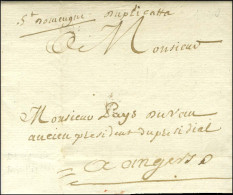 St domengue duplicatta
A Monsieur
Monsieur Pays duvau
ancien president du presidial
a angers